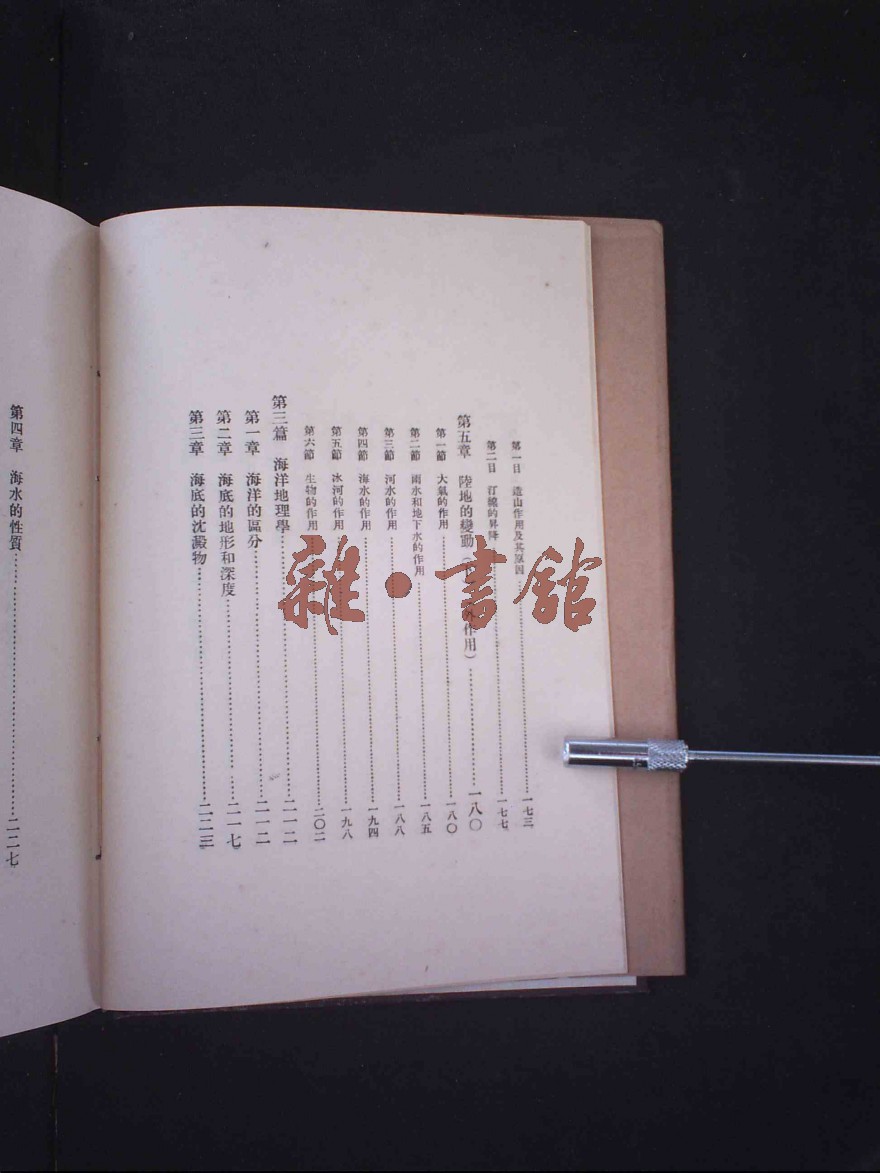 第一目 造山作用及其原因……一七三
第二目 汀線的昇降……一七七
第五章 陸地的變動(外作用)……一八〇
第一節 大氣的作用……一八〇
第二節 雨水和地下水的作用……一八五
第三節 河水的作用……一八八
第四節 海水的作用……一九四
第五節 冰河的作用……一九八
第六節 生物的作用……二〇二
第三篇 海洋地理學……二一二
第一章 海洋的區分……二一二
第二章 海底的地形和深度……二一七
第三章 海底的沈澱物……二二三
第四章 海水的性質……二二七
雜·書館